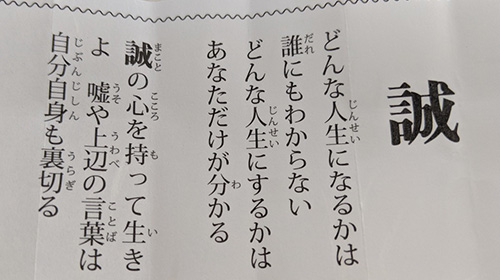 誠
どんな人生になるかは
誰にもわからない
どんな人生にするかは
あなただけが分かる
誠の心を持って生き
よ　嘘や上辺の言葉は
自分自身も裏切る